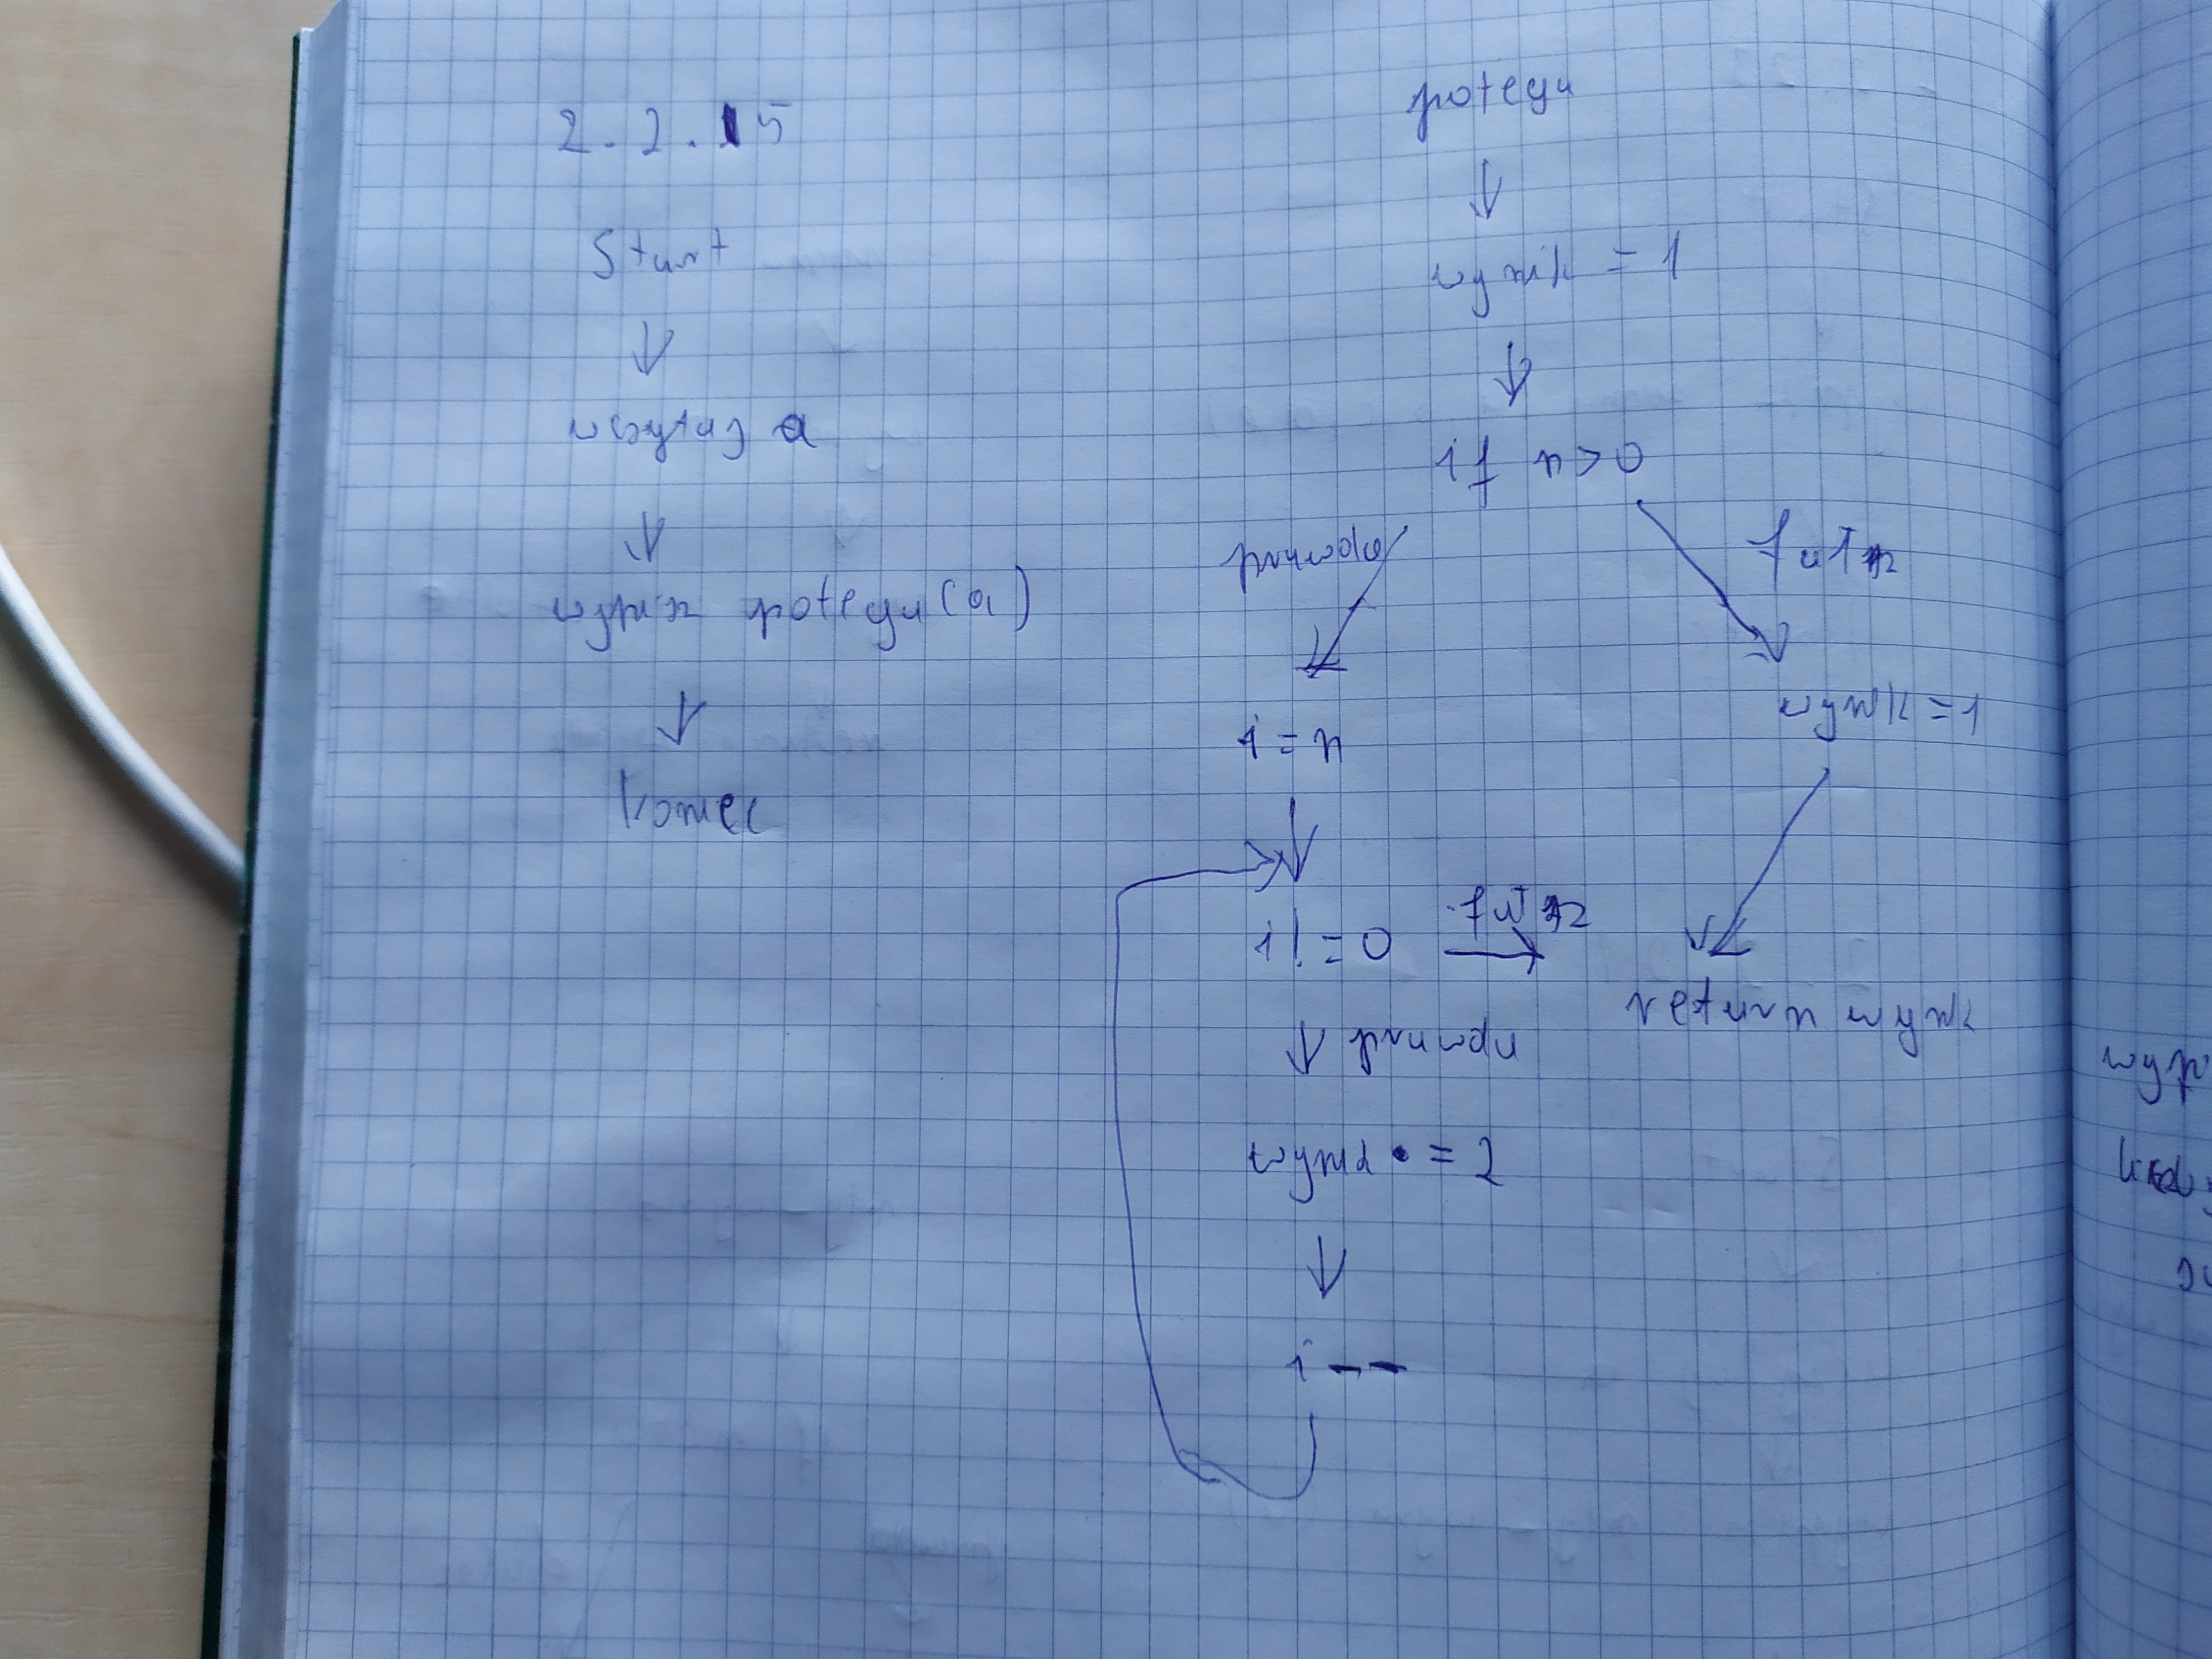 2.2.15
Start
wczytaj a
wypisz potega(a)
koniec
potega
wynik = 1
if n>0
prawda
fałsz
i = n
wynik = 1
i != 0
fałsz
return wynik
prawda
wynik • = 2
i --
wyp